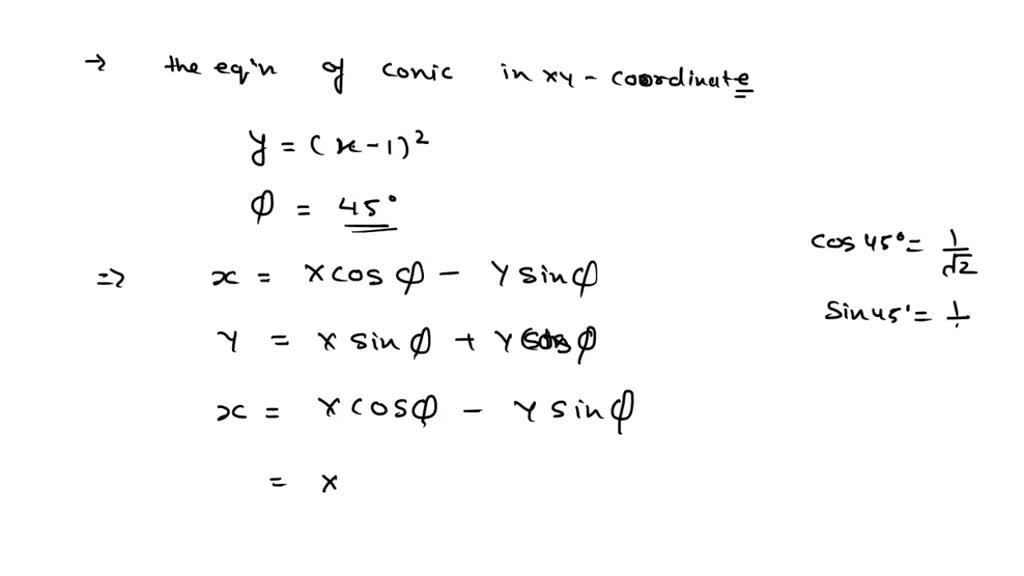 → the eq'n of conic in xy - coordinate
y = (x-1)²
φ = 45°
cos 45° = 1/√2
⇒ x = X cos φ - Y sin φ
Sin 45' = 1/
Y = X sin φ + Y cos φ
x = X cos φ - Y sin φ
= X